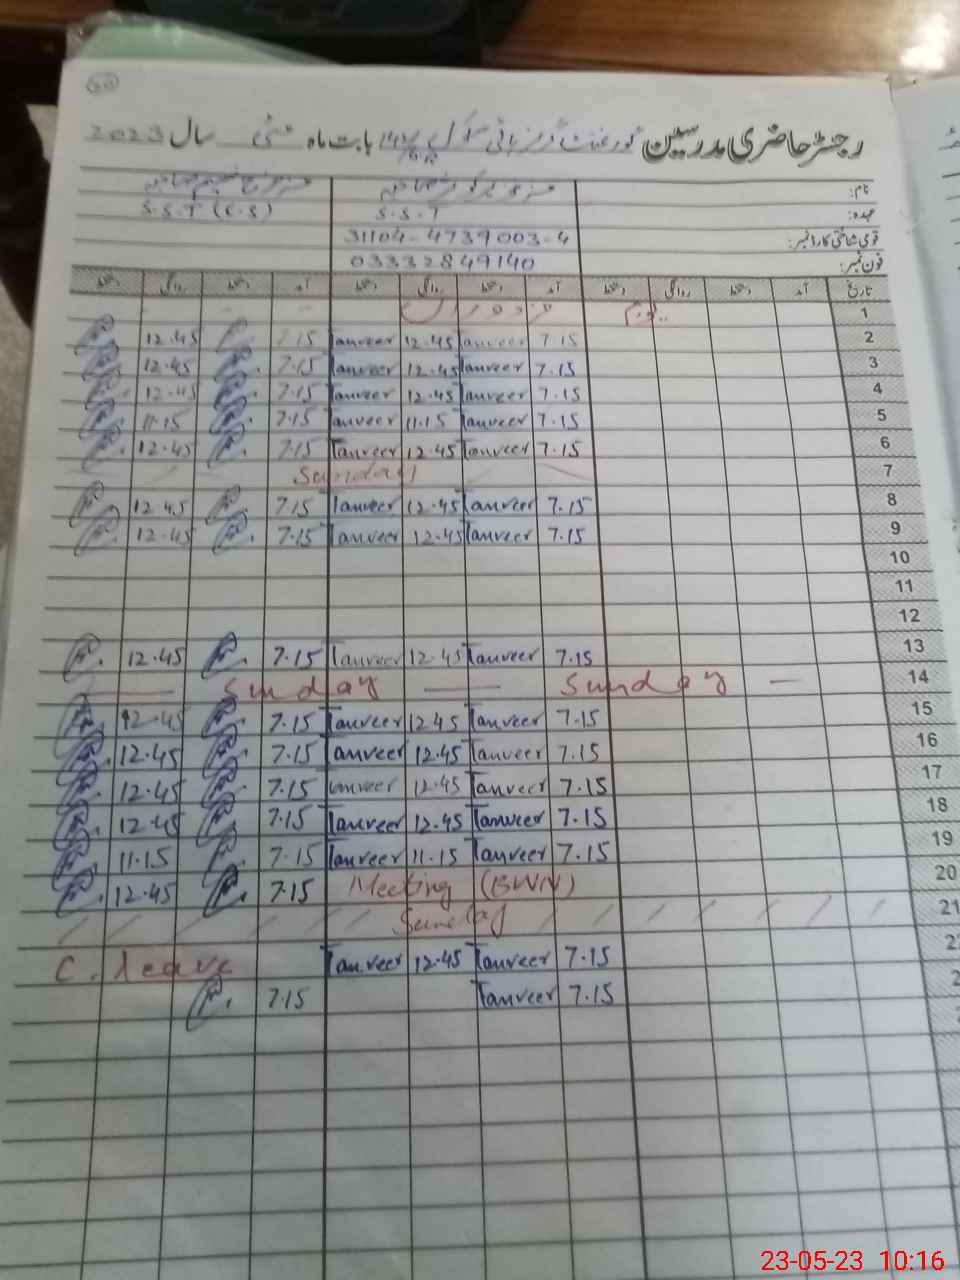 20
رجسٹر حاضری مدرسین گورنمنٹ گرلز ہائی سکول بابت ماہ مئی سال 2023
نام:
عہدہ: S.S.T S.S.T (C.S)
قومی شناختی کارڈ نمبر: 31104-4739003-4
فون نمبر: 03332849140
تاریخ آمد دستخط روانگی دستخط آمد دستخط روانگی دستخط آمد دستخط روانگی دستخط
1
2 7.15 Tanveer 12.45 Tanveer 7.15 12.45
3 7.15 Tanveer 12.45 Tanveer 7.15 12.45
4 7.15 Tanveer 12.45 Tanveer 7.15 12.45
5 7.15 Tanveer 11.15 Tanveer 7.15 11.15
6 7.15 Tanveer 12.45 Tanveer 7.15 12.45
7 Sunday
8 7.15 Tanveer 12.45 Tanveer 7.15 12.45
9 7.15 Tanveer 12.45 Tanveer 7.15 12.45
10
11
12
13 7.15 Tanveer 12.45 Tanveer 7.15 12.45
14 Sunday Sunday
15 7.15 Tanveer 12.45 Tanveer 7.15 12.45
16 7.15 Tanveer 12.45 Tanveer 7.15 12.45
17 7.15 Tanveer 12.45 Tanveer 7.15 12.45
18 7.15 Tanveer 12.45 Tanveer 7.15 12.45
19 7.15 Tanveer 11.15 Tanveer 7.15 11.15
20 Meeting (BWN) 7.15 12.45
21 Sunday
7.15 Tanveer 12.45 Tanveer C. leave
7.15 Tanveer 7.15
23-05-23 10:16